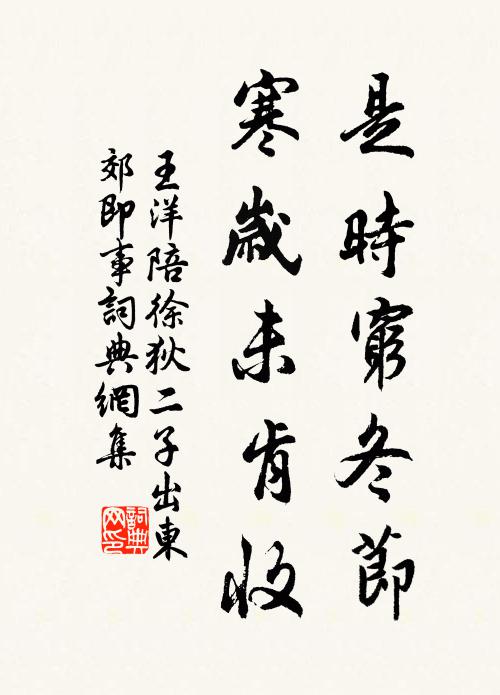 是時窮冬節
寒歲未肯收
王洋陪徐狄二子出東
郊即事詞典網集
詞典网印